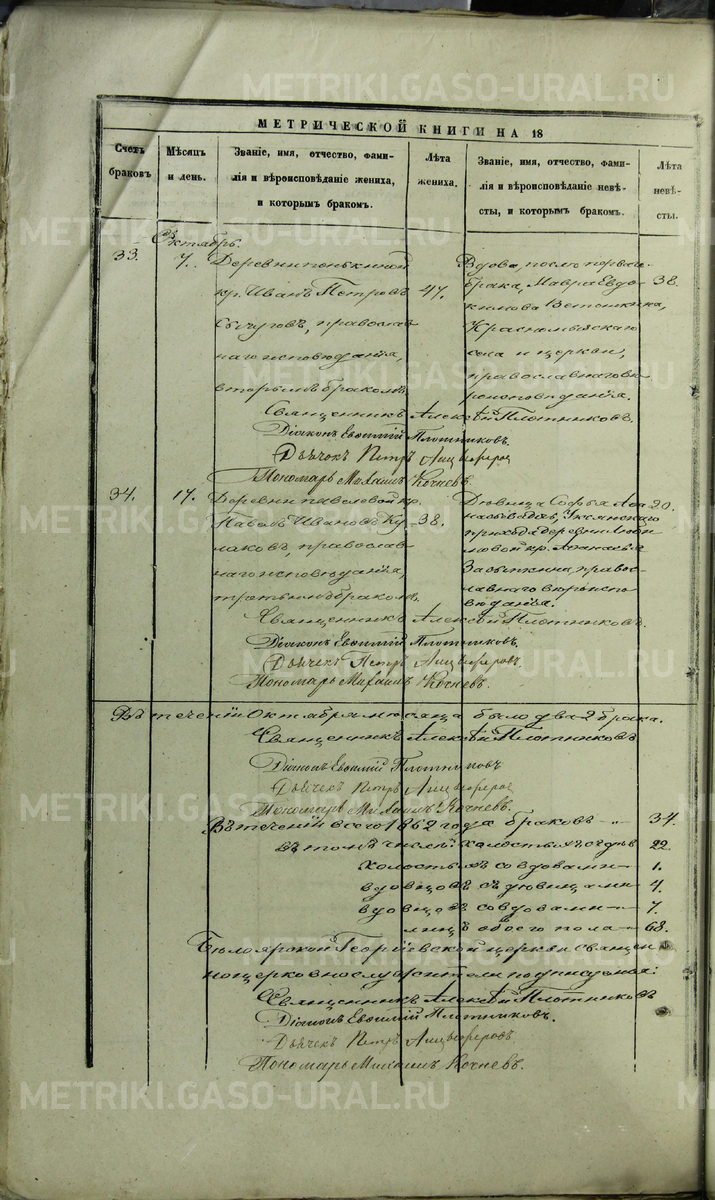 МЕТРИЧЕСКОЙ КНИГИ НА 18
Счетъ браковъ
Мѣсяцъ и день.
Званіе, имя, отчество, фами-
лія и вѣроисповѣданіе жениха,
и которымъ бракомъ.
Лѣта жениха.
Званіе, имя, отчество, фами-
лія и вѣроисповѣданіе невѣ-
сты, и которымъ бракомъ.
Лѣта невѣ-
сты.
Октябрь.
33.
7.
Деревни
кр. Иванъ Петровъ
православ
наго исповѣданія,
вторымъ бракомъ.
47.
Вдова, послѣ перваго
брака, Мавра Евдо-
кимова
села и церкви,
православнаго вѣ
роисповѣданія.
38.
Священникъ Алексѣй Плотниковъ.
Діаконъ Евѳимій Плотниковъ.
Дьячекъ Петръ
Пономарь Михаилъ Кочневъ.
34.
17.
Деревни кр.
Павелъ Ивановъ Ку
лаковъ, православ
наго исповѣданія,
третьимъ бракомъ.
38.
Дѣвица Софья Аѳа
насьева
прихода деревни
кр. Аѳанасья
правос-
лавнаго вѣроиспо
вѣданія.
20.
Священникъ Алексѣй Плотниковъ.
Діаконъ Евѳимій Плотниковъ.
Дьячекъ Петръ
Пономарь Михаилъ Кочневъ.
Въ теченіи Октября мѣсяца было два 2 брака.
Священникъ Алексѣй Плотниковъ
Діаконъ Евѳимій Плотниковъ
Дьячекъ Петръ
Пономарь Михаилъ Кочневъ.
Въ теченіи всего 1862 года браковъ 34.
въ томъ числѣ: холостыхъ съ дѣв 22.
холостыхъ со вдовами 1.
вдовцовъ съ дѣвицами 4.
вдовцовъ со вдовами 7.
лицъ обоего пола 68.
Бѣлоярской Георгіевской церкви священ
ноцерковнослужители подписуемся:
Священникъ Алексѣй Плотниковъ
Діаконъ Евѳимій Плотниковъ.
Дьячекъ Петръ
Пономарь Михаилъ Кочневъ.
METRIKI.GASO-URAL.RU